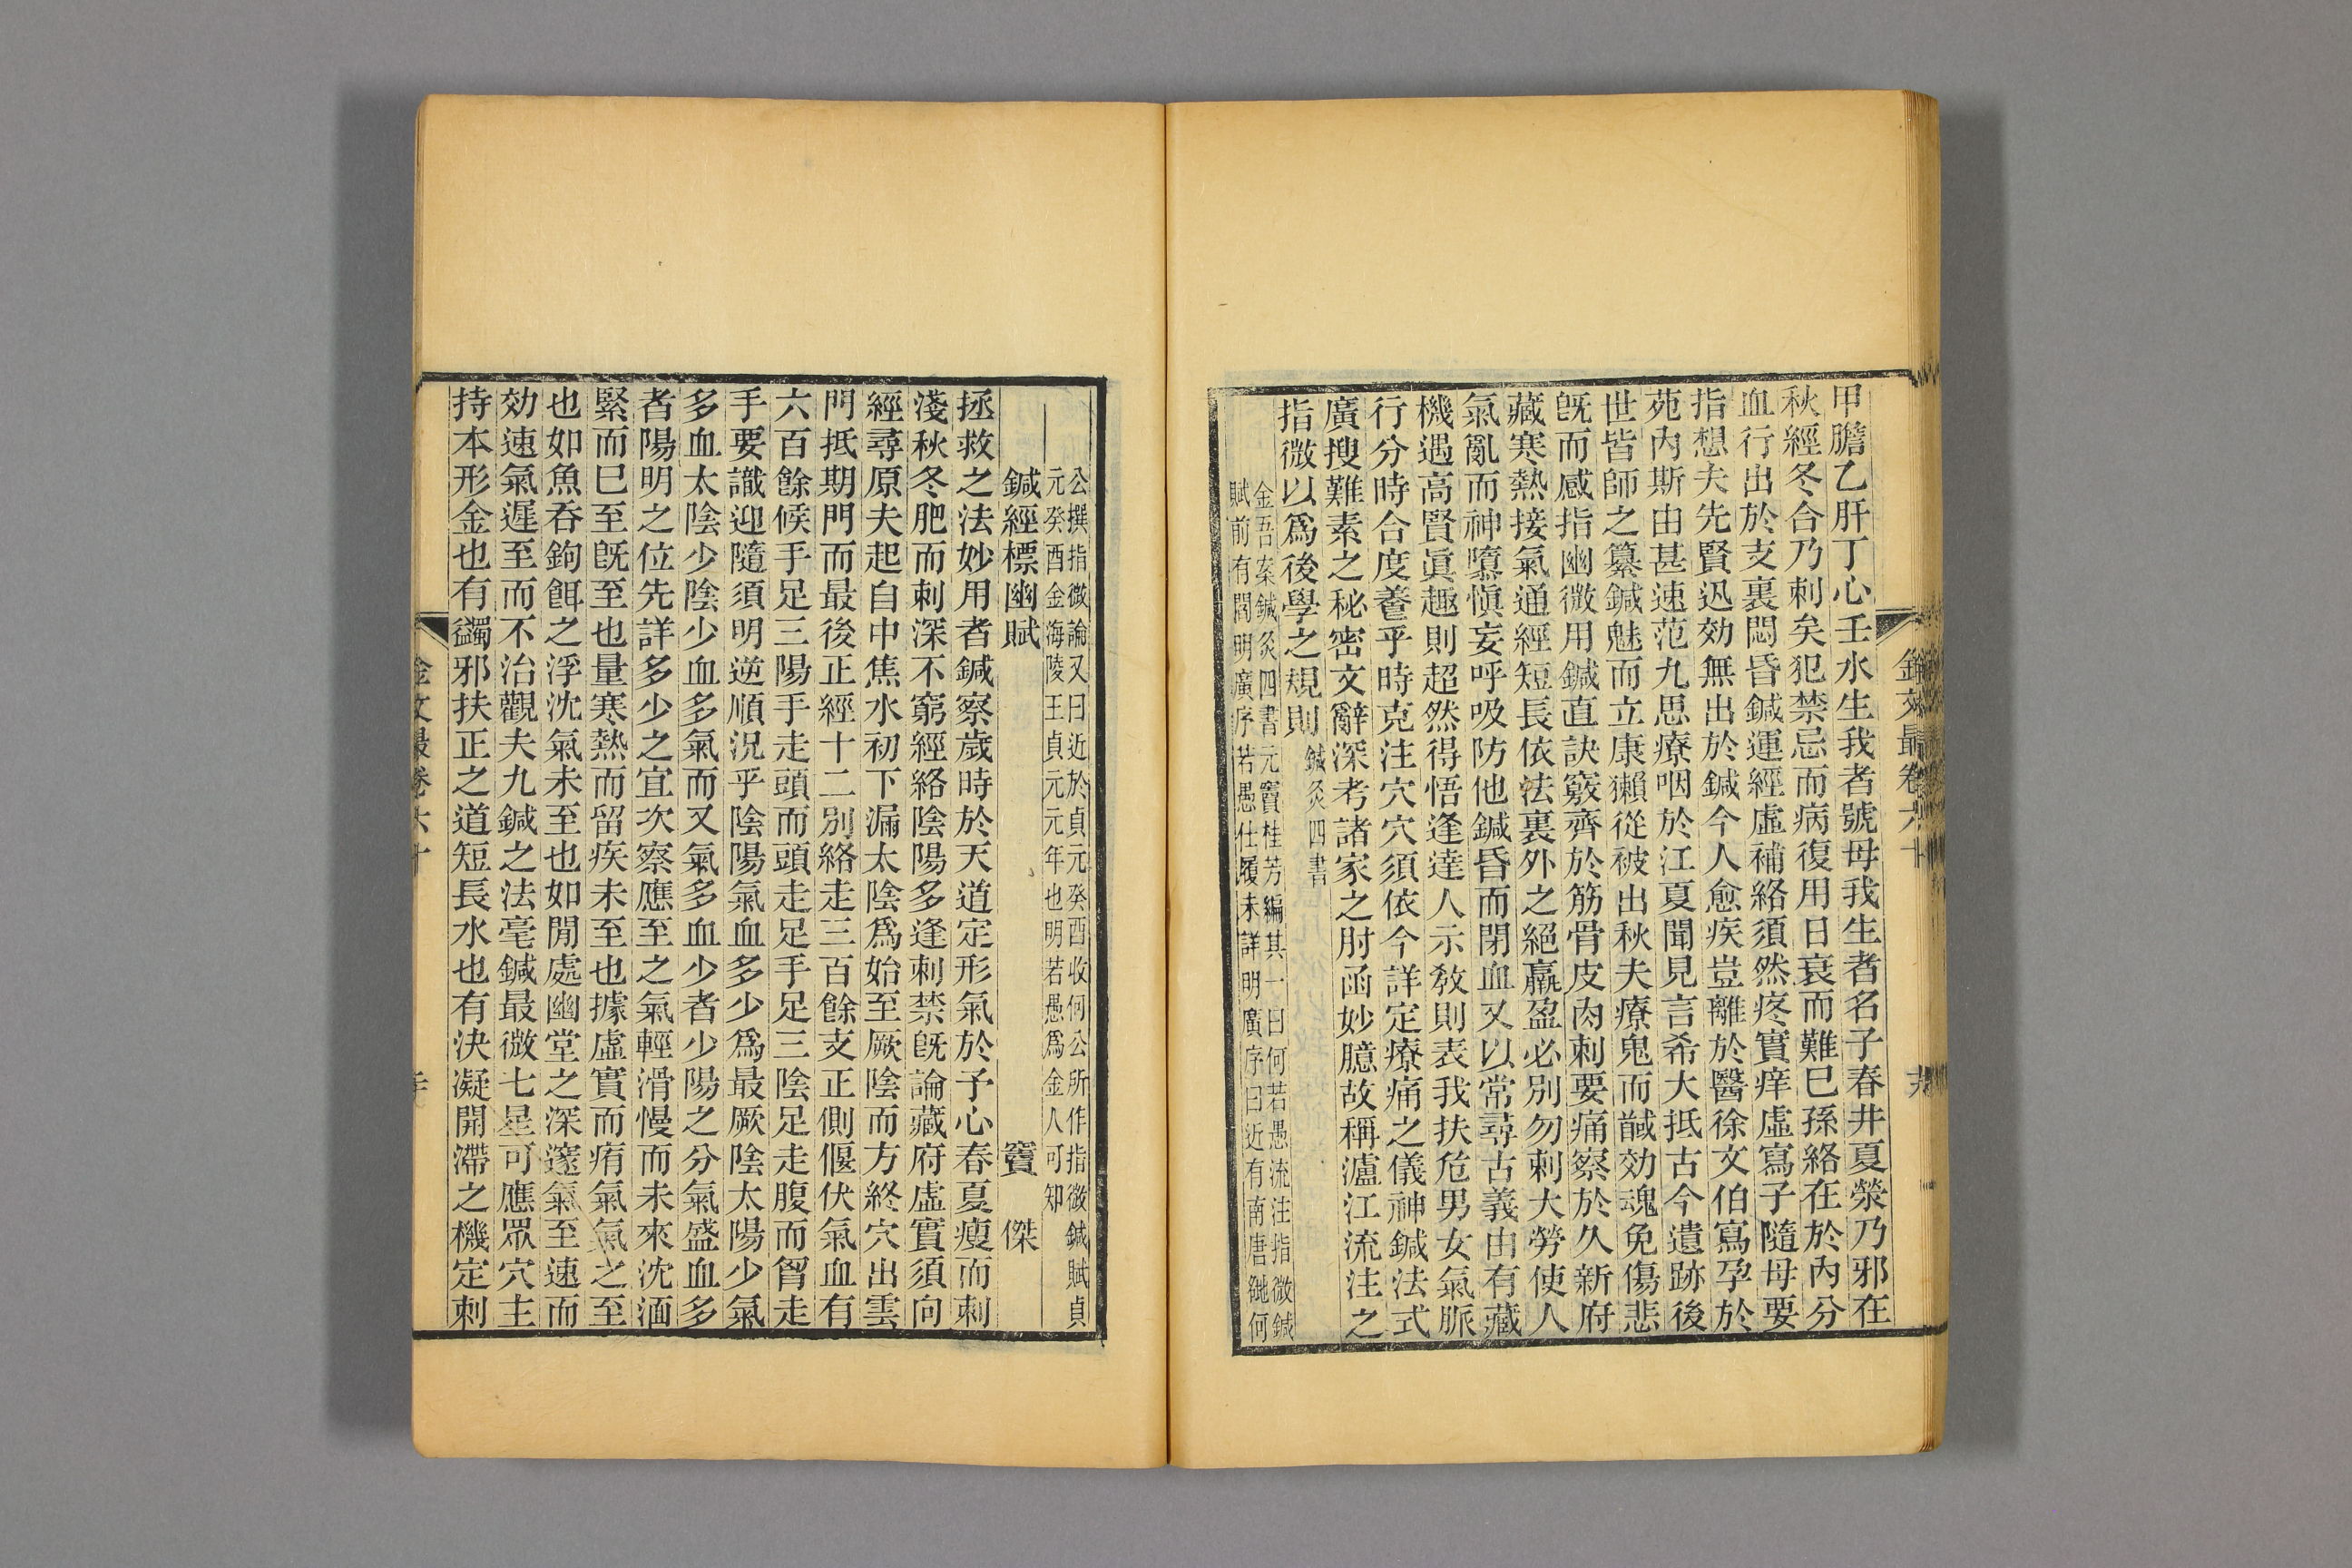 甲膽乙肝丁心壬水生我者號母我生者名子春井夏滎乃邪在
秋經冬合乃刺矣犯禁忌而病復用日衰而難巳孫絡在於內分
血行出於支裏悶昏鍼運經虛補絡須然疼實痒虛寫子隨母要
指想夫先賢迅効無出於鍼今人愈疾豈離於醫徐文伯寫孕於
苑內斯由甚速范九思療咽於江夏聞見言希大抵古今遺跡後
世皆師之纂鍼魅而立康獺從被出秋夫療鬼而馘効魂免傷悲
旣而感指幽微用鍼直訣竅齊於筋骨皮肉刺要痛察於久新府
藏寒熱接氣通經短長依法裏外之絕羸盈必別勿刺大勞使人
氣亂而神隳愼妄呼吸防他鍼昏而閉血又以常尋古義由有藏
機遇高賢眞趣則超然得悟逢達人示敎則表我扶危男女氣脈
行分時合度養乎時克注穴穴須依今詳定療痛之儀神鍼法式
廣搜難素之秘密文辭深考諸家之肘函妙臆故稱瀘江流注之
指微以爲後學之規則鍼灸四書
金吾案鍼灸四書元竇桂芳編其一曰何若愚流注指微鍼
賦前有閻明廣序若愚仕履未詳明廣序曰近有南唐何
公撰指微論又曰近於貞元癸酉收何公所作指微鍼賦貞
元癸酉金海陵王貞元元年也明若愚爲金人可知
鍼經標幽賦 竇傑
拯救之法妙用者鍼察歲時於天道定形氣於予心春夏瘦而刺
淺秋冬肥而刺深不窮經絡陰陽多逢刺禁旣論藏府虛實須向
經尋原夫起自中焦水初下漏太陰爲始至厥陰而方終穴出雲
門抵期門而最後正經十二別絡走三百餘支正側偃伏氣血有
六百餘候手足三陽手走頭而頭走足手足三陰足走腹而胷走
手要識迎隨須明逆順況乎陰陽氣血多少爲最厥陰太陽少氣
多血太陰少陰少血多氣而又氣多血少者少陽之分氣盛血多
者陽明之位先詳多少之宜次察應至之氣輕滑慢而未來沈濇
緊而巳至旣至也量寒熱而留疾未至也據虛實而痏氣氣之至
也如魚吞鉤餌之浮沈氣未至也如閒處幽堂之深邃氣至速而
効速氣遲至而不治觀夫九鍼之法毫鍼最微七星可應眾穴主
持本形金也有蠲邪扶正之道短長水也有決凝開滯之機定刺
金文最卷六十